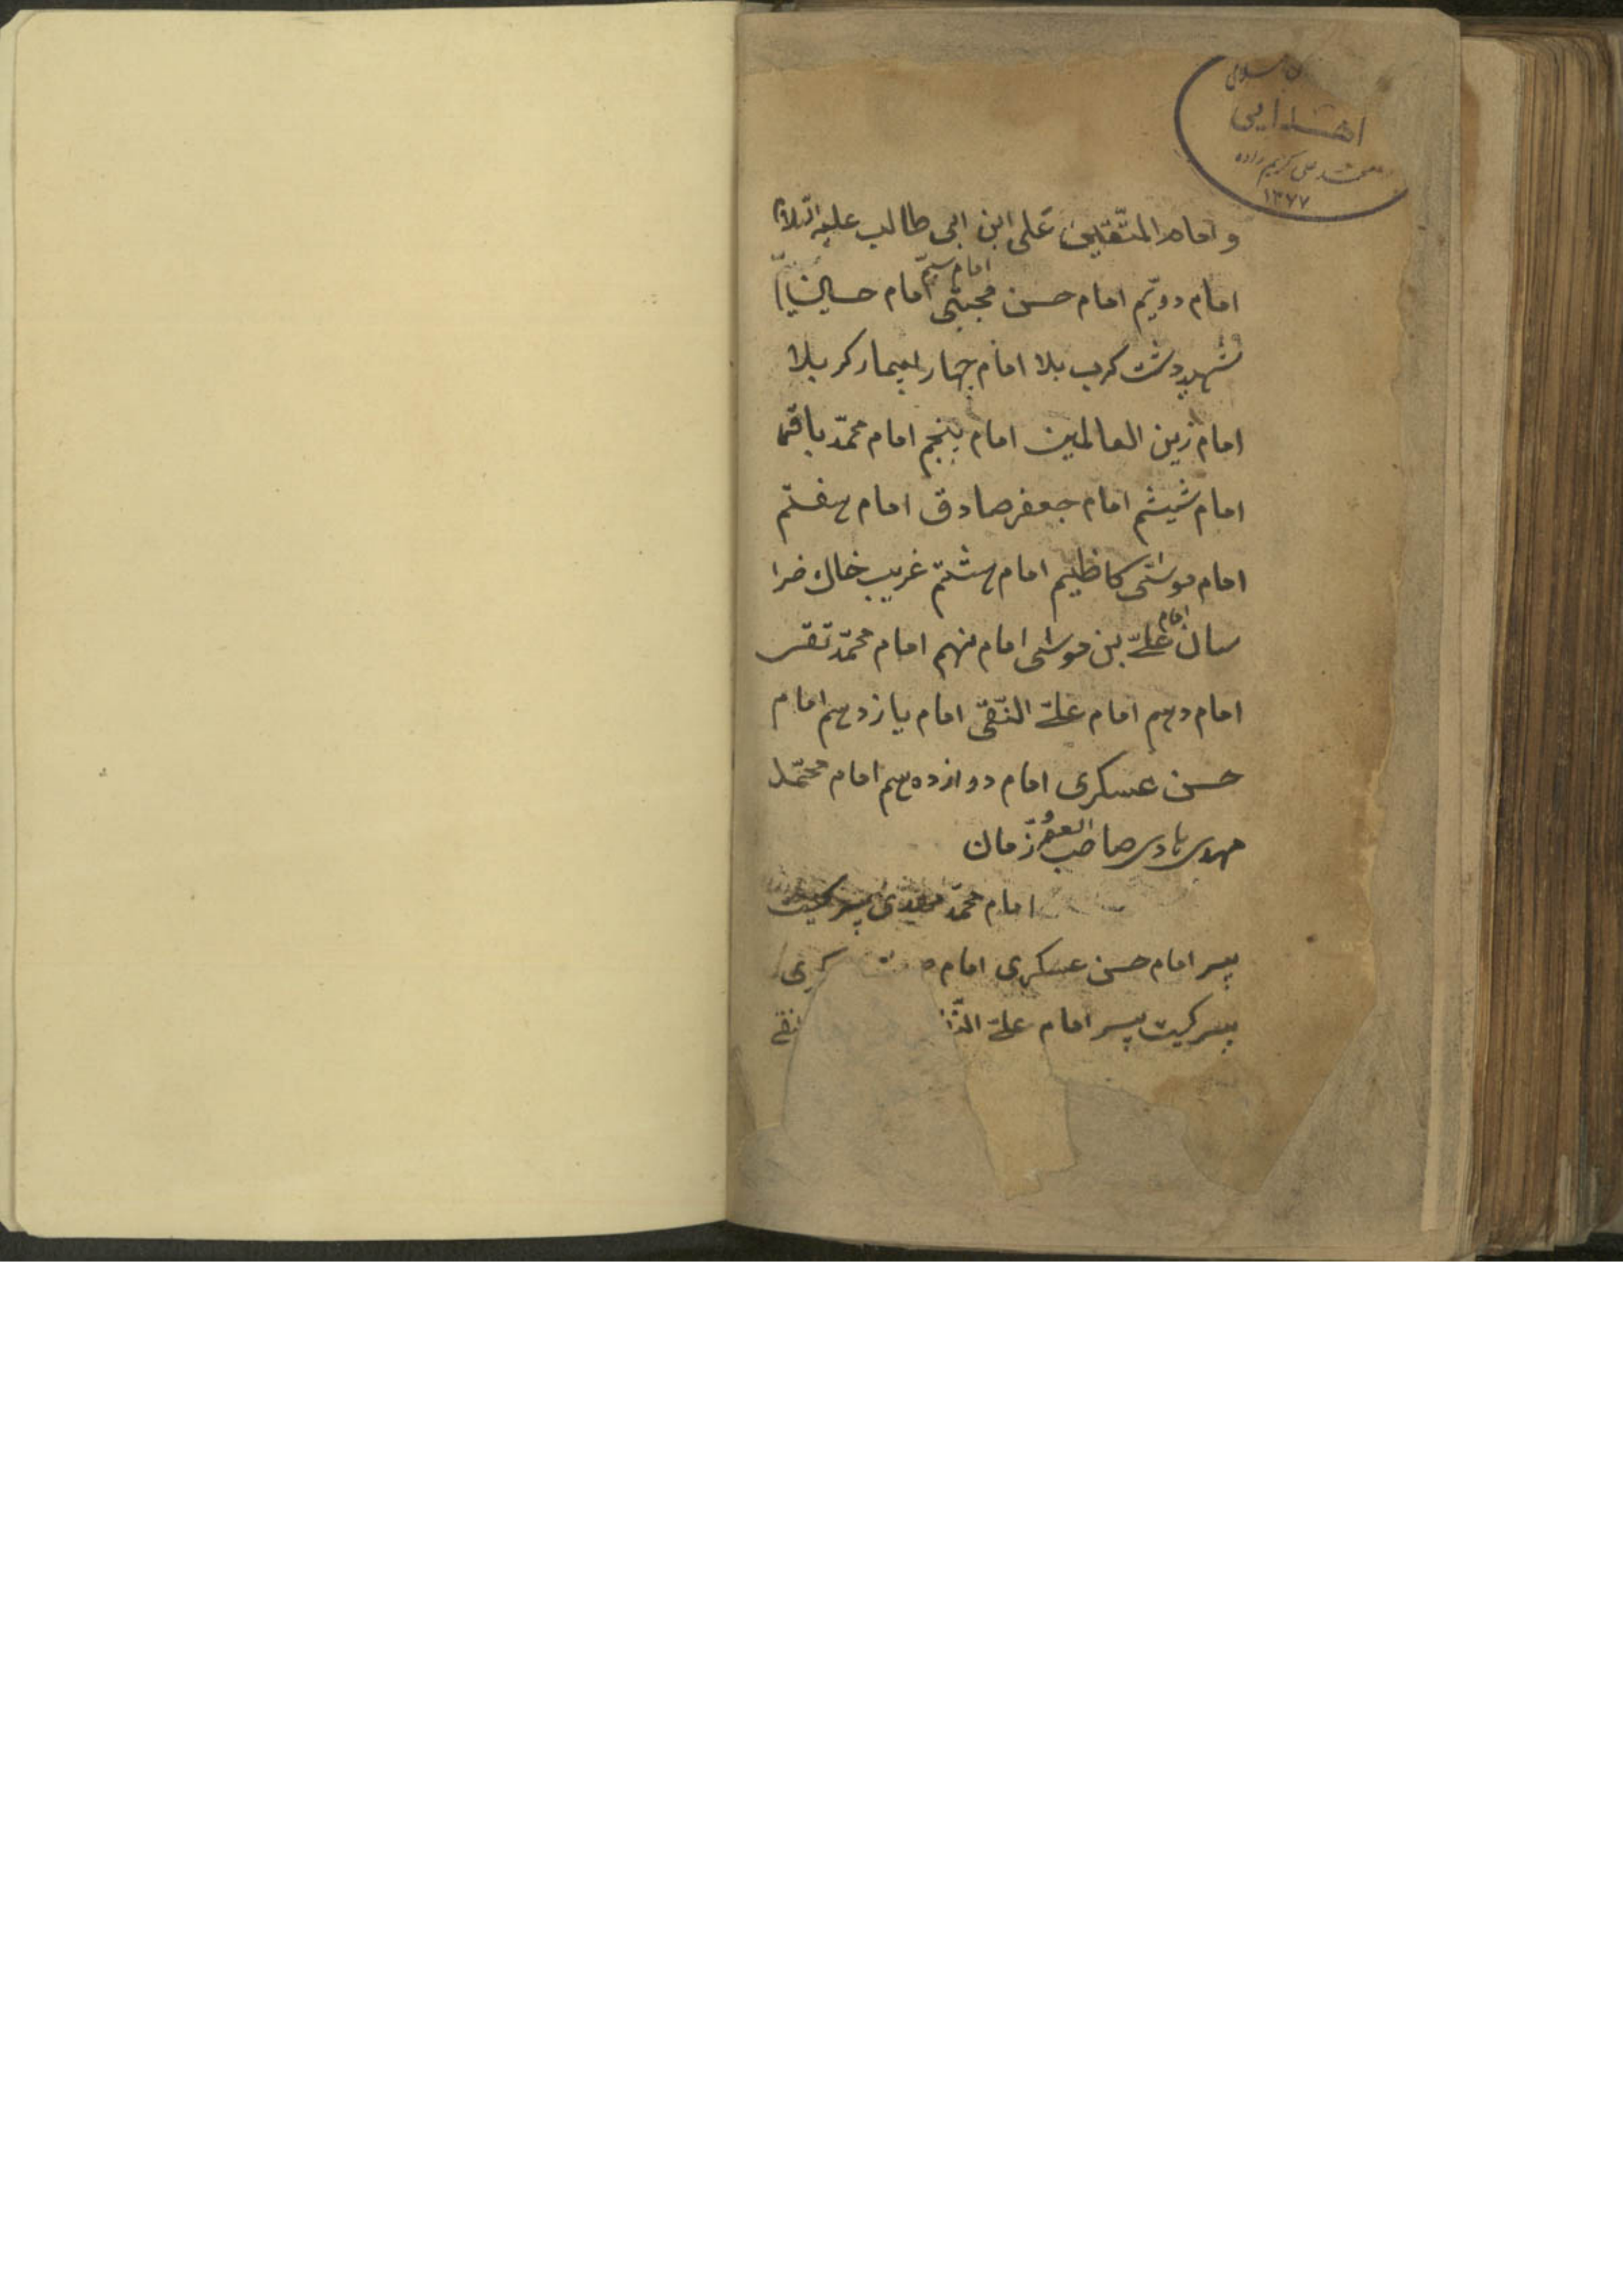 اهدایی
محمد علی کریم زاده
۱۳۶۷
و امام المتّقین علی ابن ابی طالب علیه السّلام
امام دویّم امام حسن مجتبی امام سیّم امام حسین
شهید دشت کرب بلا امام چهار بیمار کربلا
امام زین العالمین امام پنجم امام محمّد باقر
امام شیشم امام جعفر صادق امام هفتم
امام موسی کاظیم امام هشتم غریب خاك خرا
سان امام علیّ بن موسی امام نهم امام محمّد تقی
امام دهم امام علیّ النّقی امام یازدهم امام
حسن عسکری امام دوازدهم امام محمّد
مهدی هادی صاحب العصر و زمان
امام محمّد مهدی پسر کیست
پسر امام حسن عسکری امام
پسر کیست پسر امام علیّ